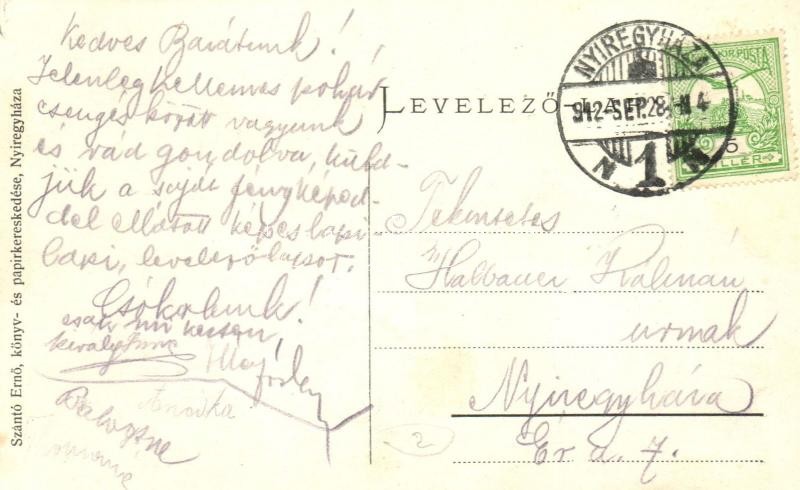 Kedves Barátunk!
Jelenleg kellemes pohár
csengés között vagyunk
és rád gondolva, küld-
jük a saját fényképed-
del ellátott képes lapi
lapi, levelezőlapot.
Csókolunk!
csak mi ketten,
Annuska
Balogné
Szántó Ernő, könyv- és papirkereskedése, Nyiregyháza
LEVELEZŐ-LAP
NYIREGYHÁZA
912-SEP.28.-N4
N 1
KIR. POSTA
5
FILLÉR
Tekintetes
Halbauer Kálmán
urnak
Nyiregyháza
Ér u. 7.
2